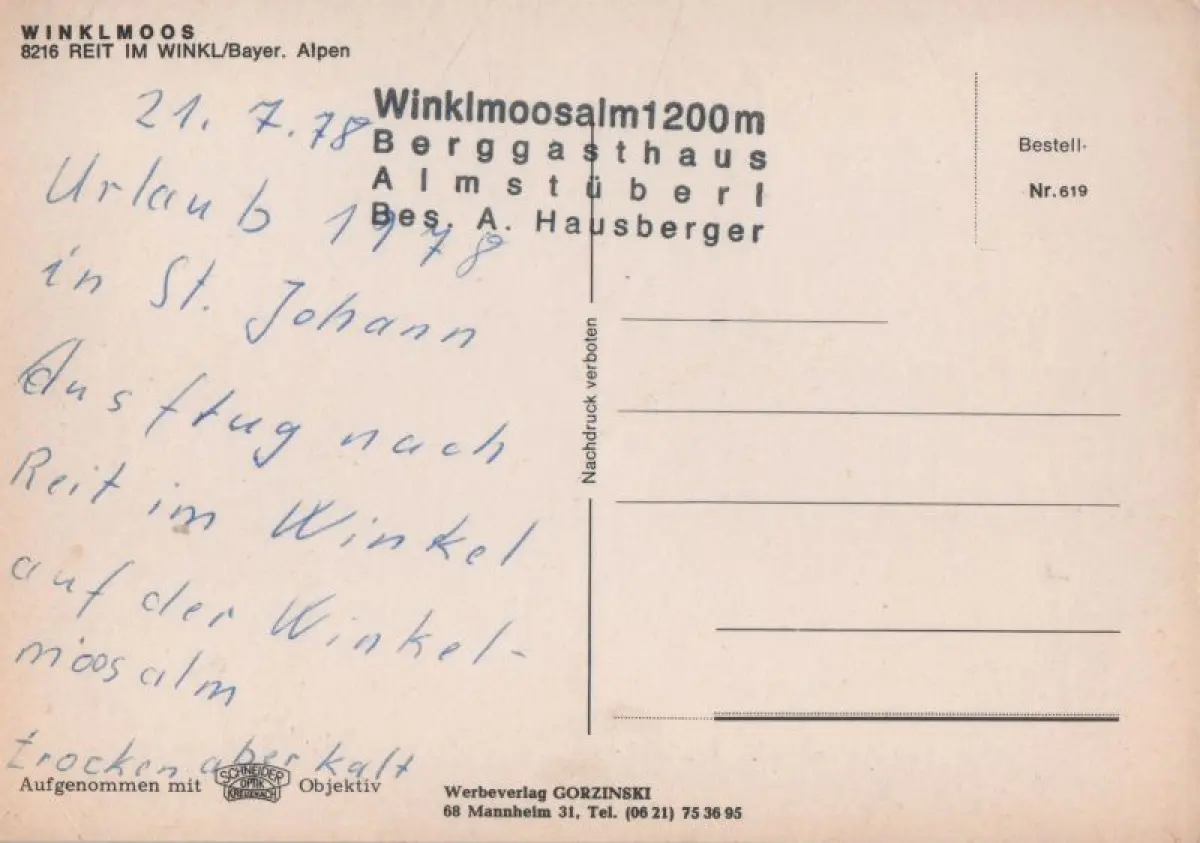 WINKLMOOS
8216 REIT IM WINKL/Bayer. Alpen
21. 7. 78
Urlaub 1978
in St. Johann
Ausflug nach
Reit im Winkel
auf der Winkel-
moosalm
trocken aber kalt
Winklmoosalm 1200m
Berggasthaus
Almstüberl
Bes. A. Hausberger
Bestell-
Nr. 619
Nachdruck verboten
Aufgenommen mit SCHNEIDER OPTIK KREUZNACH Objektiv
Werbeverlag GORZINSKI
68 Mannheim 31, Tel. (06 21) 75 36 95